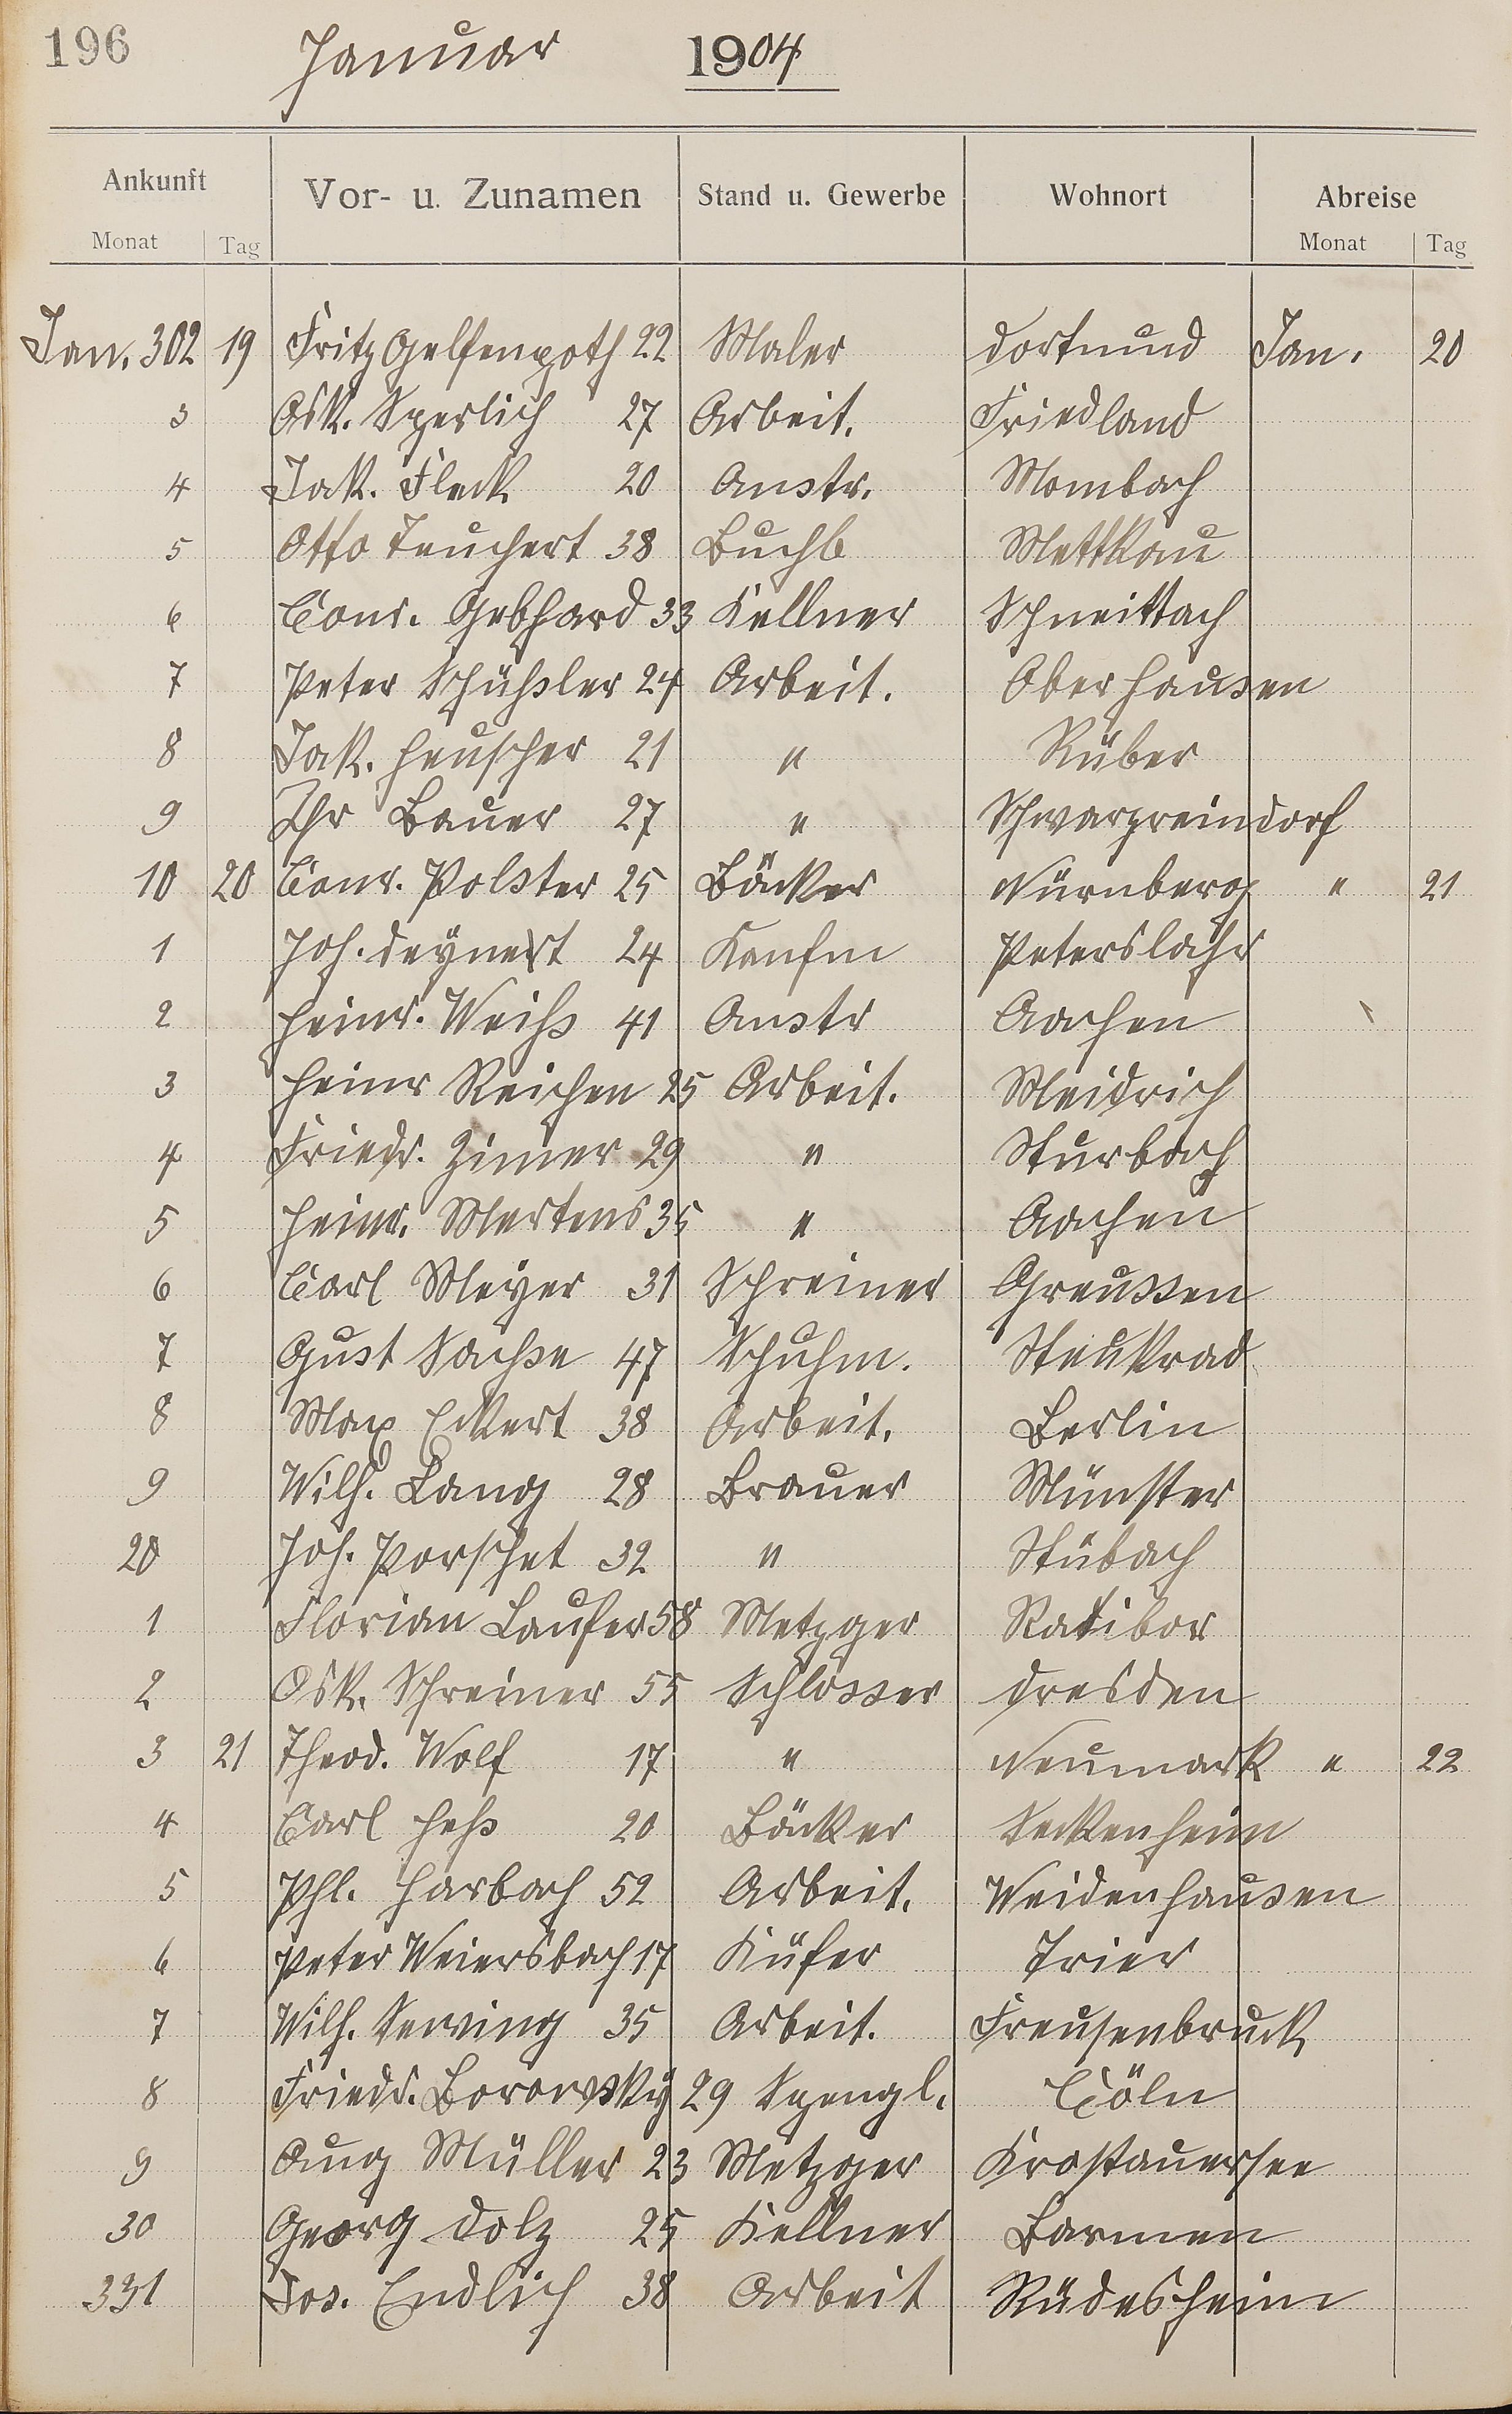 196 Januar 1904
Ankunft Vor- u. Zunamen Stand u. Gewerbe Wohnort Abreise
Monat Tag Monat Tag
Jan. 302 19 Fritz Gelfenpoth 22 Maler Dortmund Jan. 20
3 Osk. Sperlich 27 Arbeit. Friedland
4 Jak. Fleck 20 Anstr. Mombach
5 Otto Teuchert 38 Buchb Mettkau
6 Conr. Gebhard 33 Kellner Schneittach
7 Peter Schüßler 24 Arbeit. Oberhausen
8 Jak. Heuscher 21 " Rüber
9 Chr Bauer 27 " Schwarzreindorf
10 20 Conr. Polster 25 Bäcker Nürnberg " 21
1 Joh. Deynert 24 Kaufm Peterslahr
2 Heinr. Weihs 41 Anstr Aachen
3 Heinr Reichen 25 Arbeit. Meidrich
4 Friedr. Zimer 29 " Sturbach
5 Heinr. Mertens 35 " Aachen
6 Carl Meyer 31 Schreiner Greussen
7 Gust Sachse 47 Schuhm. Sterkrad
8 Max Eckert 38 Arbeit. Berlin
9 Wilh. Lang 28 Brauer Münster
20 Joh. Porschet 32 " Stübach
1 Florian Laufer 58 Metzger Ratibor
2 Osk. Schreiner 55 Schlosser Dresden
3 21 Theod. Wolf 17 " Neumark " 22
4 Carl Hehs 20 Bäcker Seckenheim
5 Phl. Harbach 52 Arbeit. Weidenhausen
6 Peter Weiersbach 17 Küfer Trier
7 Wilh. Serving 35 Arbeit. Freusenbruck
8 Friedr. Borowsky 29 Spengl. Cöln
9 Aug Müller 23 Metzger Krostauersee
30 Georg Dolz 25 Kellner Barmen
331 Jos. Endlich 38 Arbeit Rüdesheim